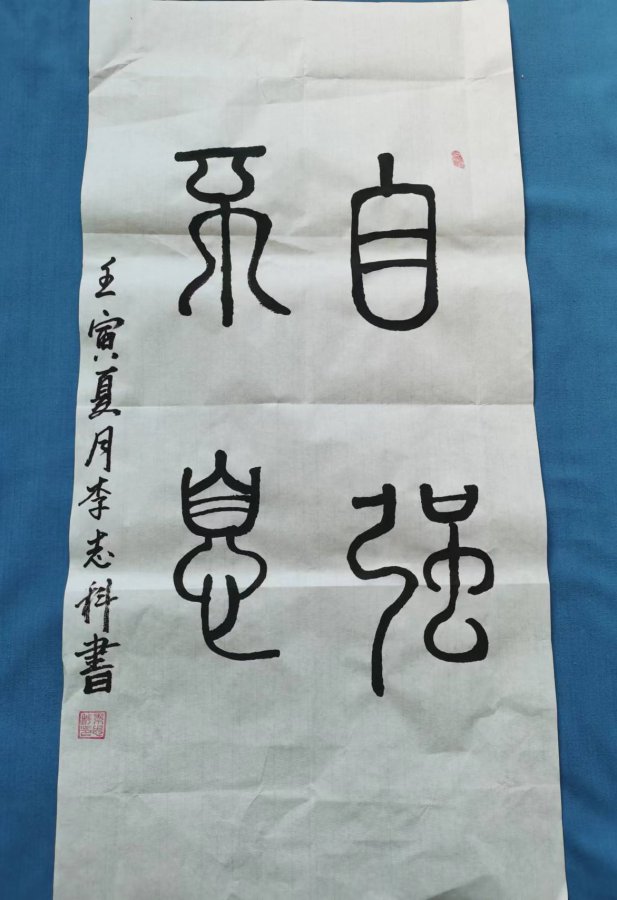 自强
不息
壬寅夏月李志科書